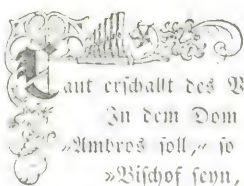 Laut erschallt des V
In dem Dom
„Ambros soll,“ so
»Bischof seyn,